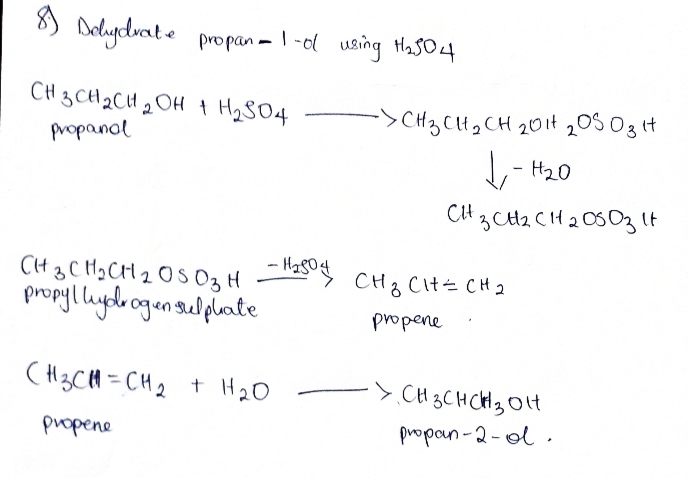 8) Dehydrate propan-1-ol using H2SO4
CH3CH2CH2OH + H2SO4 ⟶ CH3CH2CH2OH2OSO3H
propanol
↓ - H2O
CH3CH2CH2OSO3H
CH3CH2CH2OSO3H -H2SO4⟶ CH3CH=CH2
propylhydrogensulphate propene
CH3CH=CH2 + H2O ⟶ CH3CHCH3OH
propene propan-2-ol.